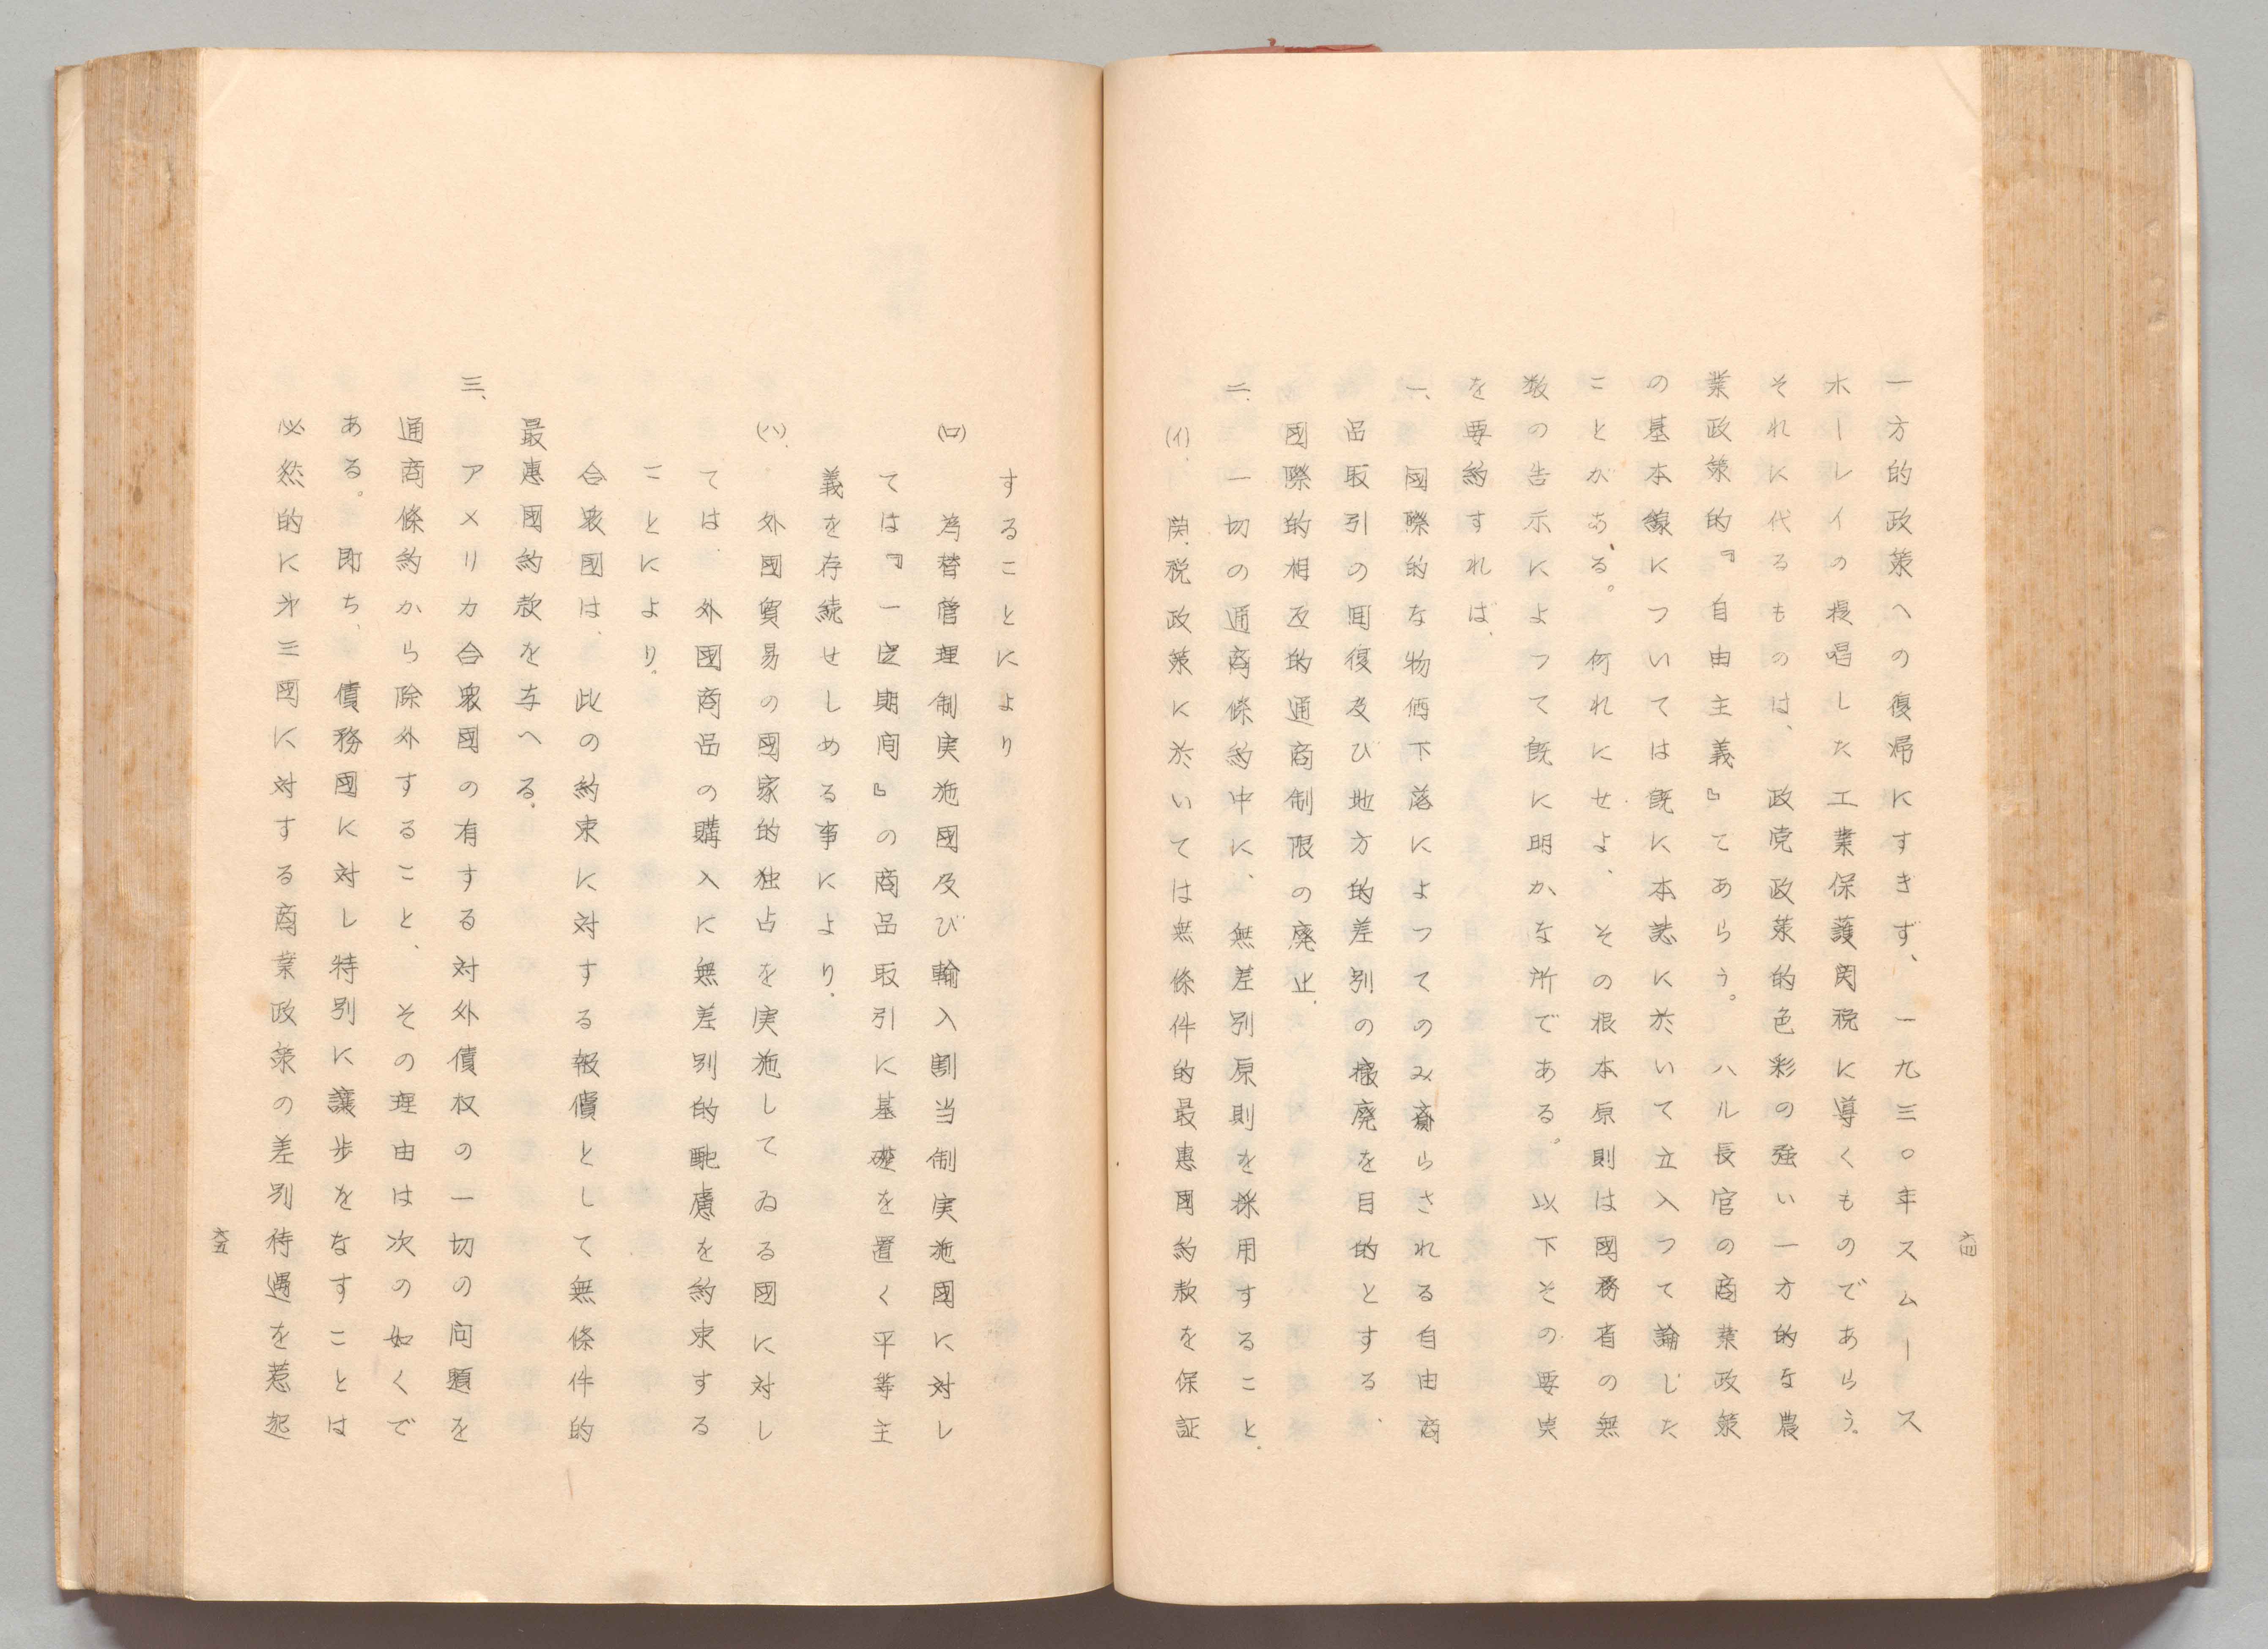 六四
一方的政策への復帰にすきず、一九三〇年スムース
ホーレイの提唱した工業保護関税に導くものであらう。
それに代るものは、政党政策的色彩の強い一方的な農
業政策的『自由主義』てあらう。ハル長官の商業政策
の基本線については既に本誌に於いて立入つて論じた
ことがある。何れにせよ、その根本原則は國務省の無
数の告示によつて既に明かな所である。以下その要実
を要約すれば、
一、國際的な物価下落によつてのみ齎らされる自由商
品取引の回復及び地方的差別の撤廃を目的とする、
國際的相互的通商制限の廃止、
二、一切の通商條約中に、無差別原則を採用すること、
(イ)、関税政策に於いては無條件的最惠國約款を保証
することにより
(ロ)為替管理制実施國及び輸入割当制実施國に対し
ては『一定期間』の商品取引に基礎を置く平等主
義を存続せしめる事により、
(ハ)、外國貿易の國家的独占を実施してゐる國に対し
ては、外國商品の購入に無差別的配慮を約束する
ことにより。
合衆國は、此の約束に対する報償として無條件的
最惠國約款を与へる。
三、アメリカ合衆國の有する対外債权の一切の问題を
通商條約から除外すること、その理由は次の如くで
ある。即ち、債務國に対し特別に譲歩をなすことは
必然的に才三國に対する商業政策の差別待遇を惹起
六五